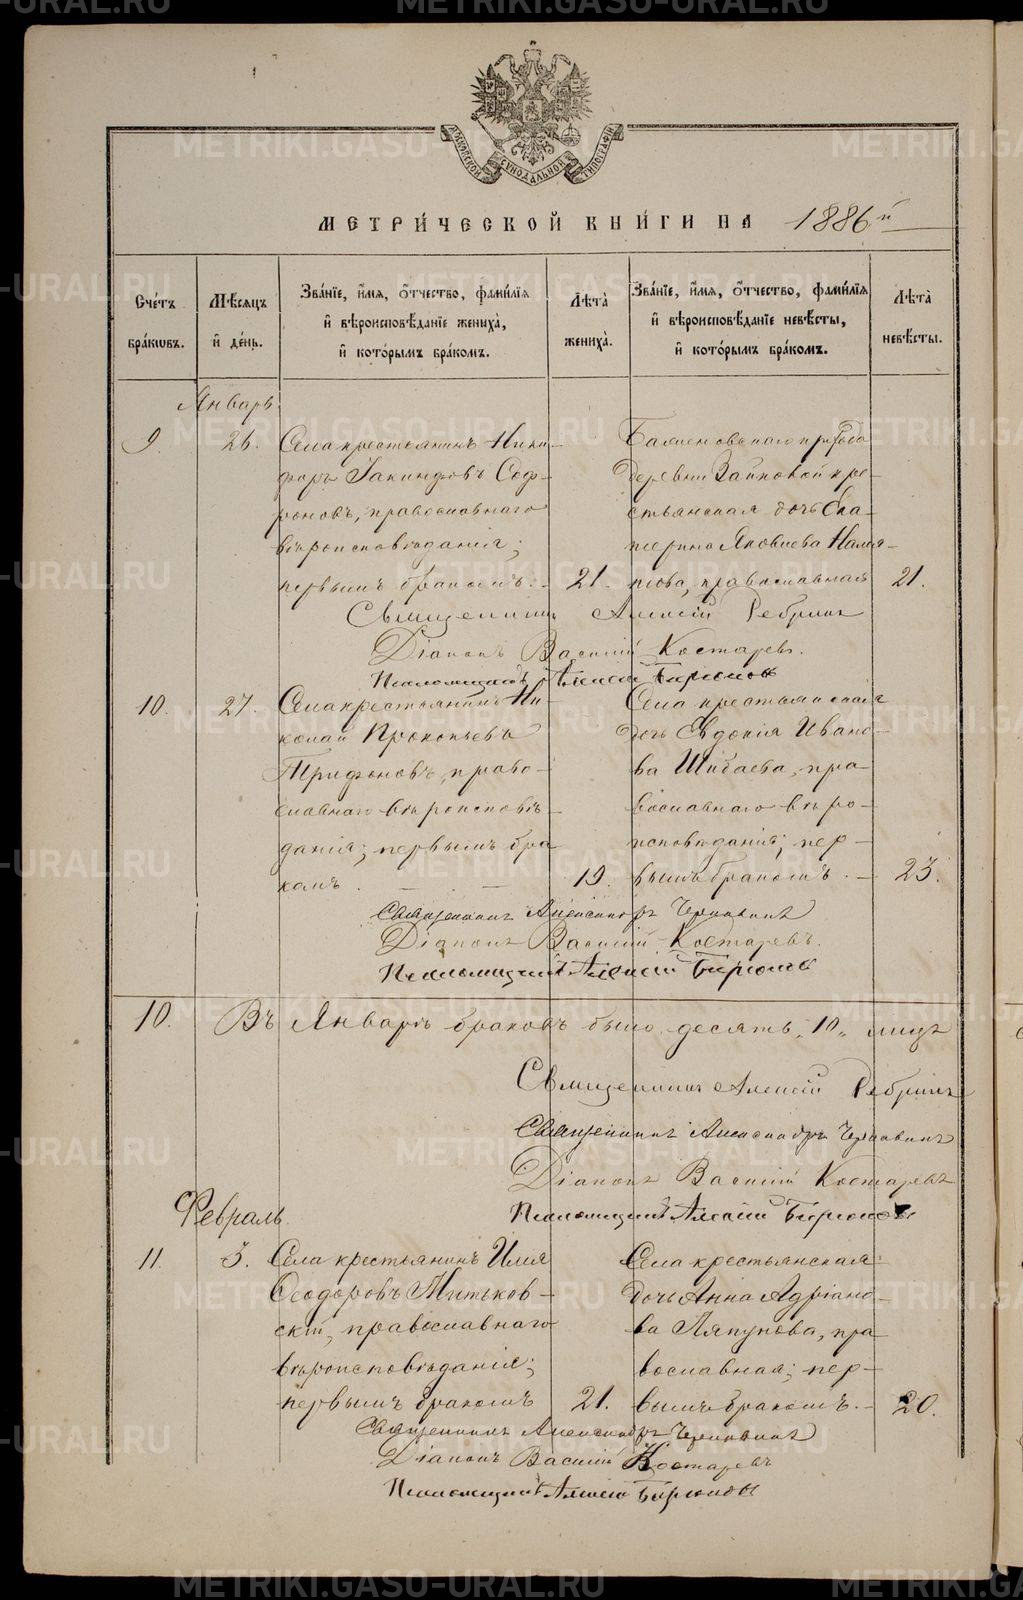 METRIKI.GASO-URAL.RU
МОСКОВСКОЙ СѴНОДАЛЬНОЙ ТИПОГРАФІИ
МЕТРИ́ЧЕСКОЙ КНИ́ГИ НА 1886 й
Сче́тъ бра́кωвъ.
Мѣ́сяцъ и҆ де́нь.
Зва́нїе, и҆́мя, ѻ҆́тчество, фами́лїя и҆ вѣроисповѣ́данїе жениха̀, и҆ кото́рымъ бра́комъ.
Лѣ́та жениха̀.
Зва́нїе, и҆́мя, ѻ҆́тчество, фами́лїя и҆ вѣроисповѣ́данїе невѣ́сты, и҆ кото́рымъ бра́комъ.
Лѣ́та невѣ́сты.
Январь.
9. 26. Села крестьянинъ Ники-
форъ Іакинфовъ Соф-
роновъ, православнаго
вѣроисповѣданія;
первымъ бракомъ. 21.
деревни Зайковой кре-
стьянская дочь Ека-
терина Яковлева
православная 21.
Священникъ Алексій Ребринъ
Діаконъ Василій Костаревъ.
Псаломщикъ Алексій Бирюковъ
10. 27. Села крестьянинъ Ни-
колай Прокопьевъ
Трифоновъ, право-
славнаго вѣроисповѣ-
данія; первымъ бра-
комъ. — — 19.
Села крестьянская
дочь Евдокія Ивано-
ва Шибаева, пра-
вославнаго вѣро-
исповѣданія; пер-
вымъ бракомъ. — 23.
Священникъ Александръ Черпавинъ
Діаконъ Василій Костаревъ.
Псаломщикъ Алексій Бирюковъ
10. Въ Январѣ браковъ было десять „10„ лицъ
Священникъ Алексій Ребринъ
Священникъ Александръ Черпавинъ
Діаконъ Василій Костаревъ
Псаломщикъ Алексій Бирюковъ
Февраль.
11. 3. Села крестьянинъ Илія
Ѳеодоровъ Митьков-
скій, православнаго
вѣроисповѣданія;
первымъ бракомъ 21.
Села крестьянская
дочь Анна Адріано-
ва Ляпунова, пра-
вославная; пер-
вымъ бракомъ. — 20.
Священникъ Александръ Черпавинъ
Діаконъ Василій Костаревъ
Псаломщикъ Алексій Бирюковъ